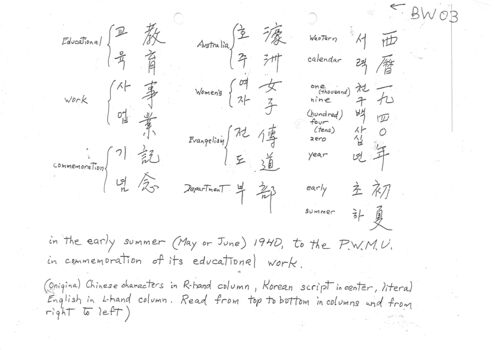 ← BW03
Educational 교 教
육 育
work 사 事
업 業
commemoration 기 記
념 念
Australia 호 濠
주 洲
Women's 여 女
자 子
Evangelism 전 傳
도 道
Department 부 部
Western 서 西
calendar 력 曆
one (thousand) 천 一
nine 구 九
(hundred) 백
four 사 四
(tens) 십
zero 0
year 년 年
early 초 初
summer 하 夏
in the early summer (May or June) 1940, to the P.W.M.U.
in commemoration of its educational work.
(Original Chinese characters in R-hand column, Korean script in center, literal
English in L-hand column. Read from top to bottom in columns and from
right to left)